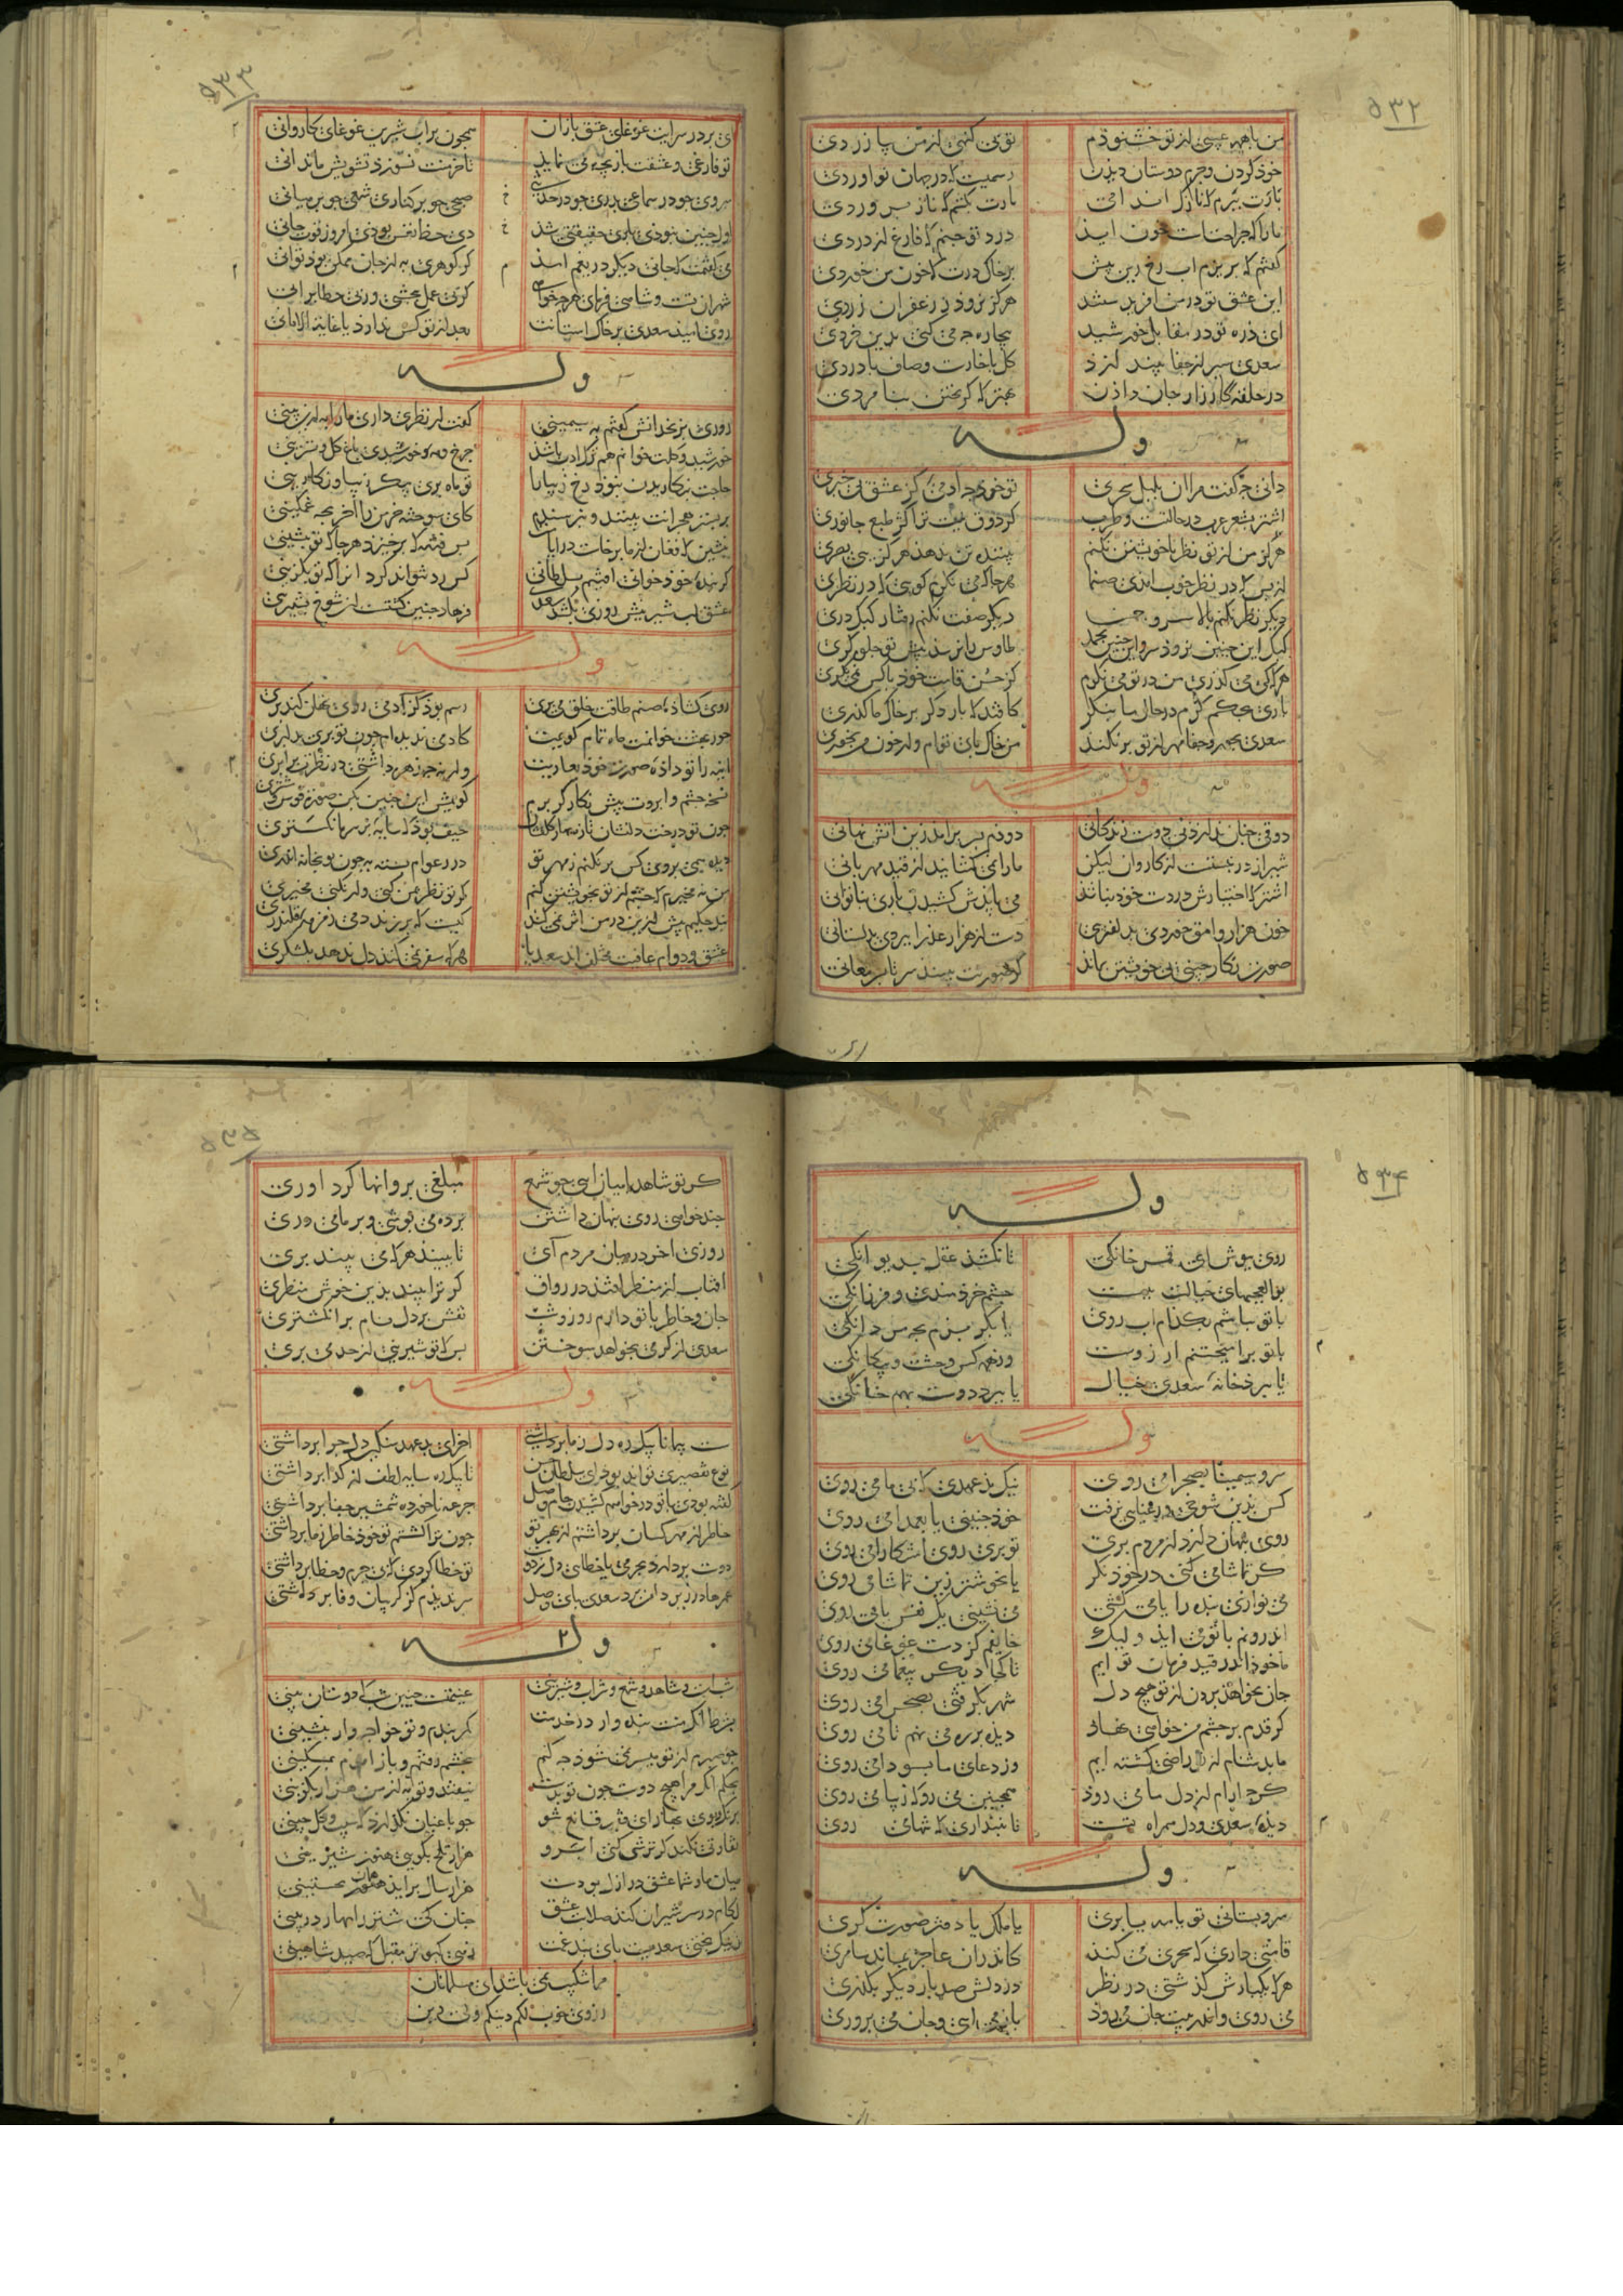 ۵۳۲
من با همه عیبی از تو خشنودم تو بی کنهی از من بیازردی
خود کردن و جرم دوستان دیدن رسمیست که در جهان تو اوردی
نازت ببرم که نازک اندامی بارت بکشم که نازپروردی
ما را که جراحتست خون اید درد تو چنم که فارغ از دردی
کفتم که بریزم اب رخ زین بیش بر خاک درت که خون من خوردی
این عشق تو در من افریدستند هرگز نرود ز زعفران زردی
ای ذره تو در مقابل خورشید بیچاره چه می کنی بدین خردی
سعدی سپر از جفا نیندازد کل با خارست و صاف با دردی
در حلقه کارزار جان دادن بهتر که کریختن بنامردی
وله
دانی چه کفت مرا ان بلبل سحری تو خود چه ادمئی کز عشق بی خبری
اشتر بشعر عرب در حالتست و طرب کر ذوق نیست ترا کژ طبع جانوری
هرگز من از تو نظر با خویشتن نکنم بیننده تن ندهد هرگز ببی بصری
از بس که در نظرم خوب امدی صنما هرجا که می نکرم کویی که در نظری
دیکر نظر نکنم بالای سرو چمن دیکر صفت نکنم رفتار کبک دری
کبک این چنین نرود سرو این چنین نچمد طاوس را نرسد پیش تو جلوه کری
هرگه که می کذری من در تو می نکرم کز حسن قامت خود با کس نمی نکری
باری بچشم کرم در حال ما بنکر کافتد که بار دکر بر خاک ما کذری
سعدی بجور و جفا مهر از تو برنکند من خاک پای توام ور خون من بخوری
وله
ذوقی چنان ندارد بی دوست زندکانی دودم بسر برامد زین اتش نهانی
شیراز در نبستست از کاروان لیکن ما را نمی کشایند از قید مهربانی
اشتر که اختیارش در دست خود نباشد می بایدش کشیدن باری بناتوانی
خون هزار وامق خوردی بدلفریبی دست از هزار عذرا بردی بدلستانی
صورت نکار چینی بی خویشتن بماند کر صورتت ببیند سر تا بسر معانی
۵۳۳
ای بر در سرایت غوغای عشق بازان همچون بر اب شیرین غوغای کاروانی
تو فارغی و عشقت بازیچه می نماید تا خرمنت نسوزد تشویش ما ندانی
صبحی چو بر کناری شمعی چو بر میانی
اول چنین نبودی باری حقیقتی شد دی حظ نفس بودی امروز قوت جانی
می کفتمت که جانی دیکر دریغم اید کر کوهری به از جان ممکن بود توانی
کر بی عمل ببخشی ور بی خطا برانی
روی امید سعدی بر خاک استانست بعد از تو کس ندارد یا غایة الامانی
وله
روزی بزنخدانش کفتم به سیمینی کفت ار نظری داری ما را به ازین بینی
خورشید و کلت خوانم هم ترک ادب باشد چرخ مه و خورشیدی باغ کل و نسرینی
حاجت بنکاریدن نبود رخ زیبا را تو ماه پری پیکر زیبا و نکارینی
بر بستر هجرانت بینند و نپرسندم کای سوخته خرمن را اخر بچه غمکینی
بنشین که فغان از ما برخاست در ایامت بس فتنه که برخیزد هرجا که تو بنشینی
کر بنده خود خوانی افتیم بسلطانی کس رد نتواند کرد انرا که تو بکزینی
عشق لب شیرینش روزی بکشد سعدی فرهاد چنین کشتست از شوخ بشیرینی
وله
روی کشاده ای صنم طاقت خلق می بری رسم بود کز ادمی روی نهان کند پری
حور بهشت خوانمت ماه تمام کویمت کادمئی ندیده ام چون تو پری بدلبری
اینه را تو داده صورت خود بعاریت
نسخه چشم و ابرویت پیش نکارکر برم کویمش این چنین بکن صورت قوس و مشتری
چون تو درخت دلستان تازه بهار و کلفشان حیف بود که سایه بر سر ما نکستری
دیده نمی بروی کس بر نکنم ز مهر تو در ز عوام بسته به چون تو بخانه اندری
من نه مخیرم که چشم از تو بخویشتن کنم کر تو نظر بمن کنی ور نکنی مخیری
پند حکیم بیش ازین در من اثر نمی کند کیست که بر زند دمی زمزمه قلندری
عشق و دوام عافیت مختلف اند سعدیا هرکه سفر نمی کند دل ندهد بلشکری
۵۳۴
وله
روی بپوش ای قمر خانکی تا نکشد عقل بدیوانکی
بوالعجبیهای خیالت ببست چشم خردمندی و فرزانکی
با تو بباشم بکدام اب روی یا بکریزم بچه مردانکی
با تو برامیختنم ارزوست وز همه کس وحشت و بیکانکی
تا نبرد خانه سعدی خیال یا ببرد دوست بهم خانکی
وله
سرو سیمینا بصحرا می روی نیک بد عهدی که بی ما می روی
کس بدین شوخی و رعنایی نرفت خود چنینی یا بعمدا می روی
روی پنهان دارد از مردم پری تو پری روی اشکارا می روی
کر تماشا می کنی در خود نکر یا بخوشتر زین تماشا می روی
می نوازی بنده را یا می کشی می نشینی یک نفس یا می روی
اندرونم با تو می اید ولیک خایفم کز دست غوغا می روی
ما خود اندر قید فرمان تو ایم تا کجا دیکر بیغما می روی
جان نخواهد بردن از تو هیچ دل شهر بکرفتی بصحرا می روی
کر قدم بر چشم من خواهی نهاد دیده بر ره می نهم تا می روی
ما بدشنام از تو راضی کشته ایم وز دعای ما بسودا می روی
کرچه ارام از دل ما می رود همچنین می رو که زیبا می روی
دیده سعدی و دل همراه تست تا نپنداری که تنها می روی
وله
سرو بستانی تو یا مه یا پری یا ملک یا دفتر صورت کری
قامتی داری که سحری می کند کاندران عاجز بماند سامری
هرکه یکبارش کذشتی در نظر در دلش صد بار دیکر بکذری
می روی و اندر پیت جان می رود باز می ایی و جان می پروری
۵۳۵
کر تو شاهد با میان ایی چو شمع مبلغی پروانها کرد اوری
چند خواهی روی پنهان داشتن پرده می پوشی و بر ما می دری
روزی اخر در میان مردم آی تا ببیند هرکه می بیند پری
افتاب از منظر افتد در رواق کر ترا بیند بدین خوش منظری
جان و خاطر با تو دارم روز و شب نقش بر دل نام بر انکشتری
سعدی از کرمی بخواهد سوختن بس که تو شیرینی از حد می بری
وله
سست پیمانا بیکره دل ز ما برداشتی اخر ای بدعهد سنکین دل چرا برداشتی
نوع تقصیری تواند بود ای سلطان حسن تا بیکره سایه لطف از کدا برداشتی
کفته بودی با تو در خواهم کشیدن جام وصل جرعه ناخورده شمشیر جفا برداشتی
خاطر از مهر کسان برداشتم از بهر تو چون ترا کشتم تو خود خاطر ز ما برداشتی
تو خطا کردی که بی جرم و خطا برداشتی
وله
شبست و شاهد و شمع و شراب و شیرینی غنیمتست چنین شب که دوستان بینی
بشرط انکه منت بنده وار در خدمت کمر ببندم و تو خواجه وار بنشینی
چو صبرم از تو میسر نمی شود چه کنم بخشم رفتم و باز امدم بمسکینی
میان ما و شما عشق در ازل بودست هزار سال براید همان نخستینی
لکام در سر شیران کند صلابت عشق چنان کشد که شتر را مهار در بینی
ز نیک بختی سعدیست پای بند غمت زهی کبوتر مقبل که صید شاهینی
مرا شکیب نمی باشد ای مسلمانان
ز روی خوب لکم دینکم ولی دین